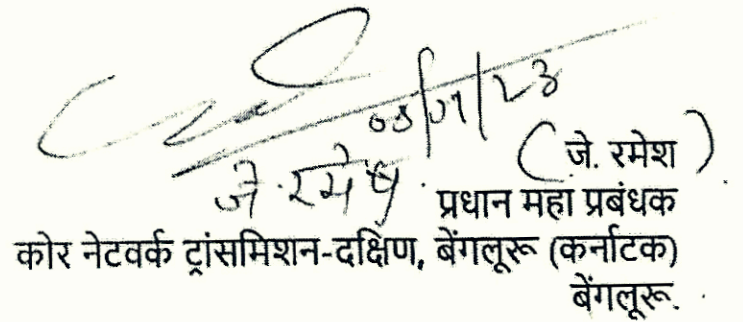 05/07/23
(जे. रमेश)
जे. रमेष
प्रधान महा प्रबंधक
कोर नेटवर्क ट्रांसमिशन-दक्षिण, बेंगलूरू (कर्नाटक)
बेंगलूरू.